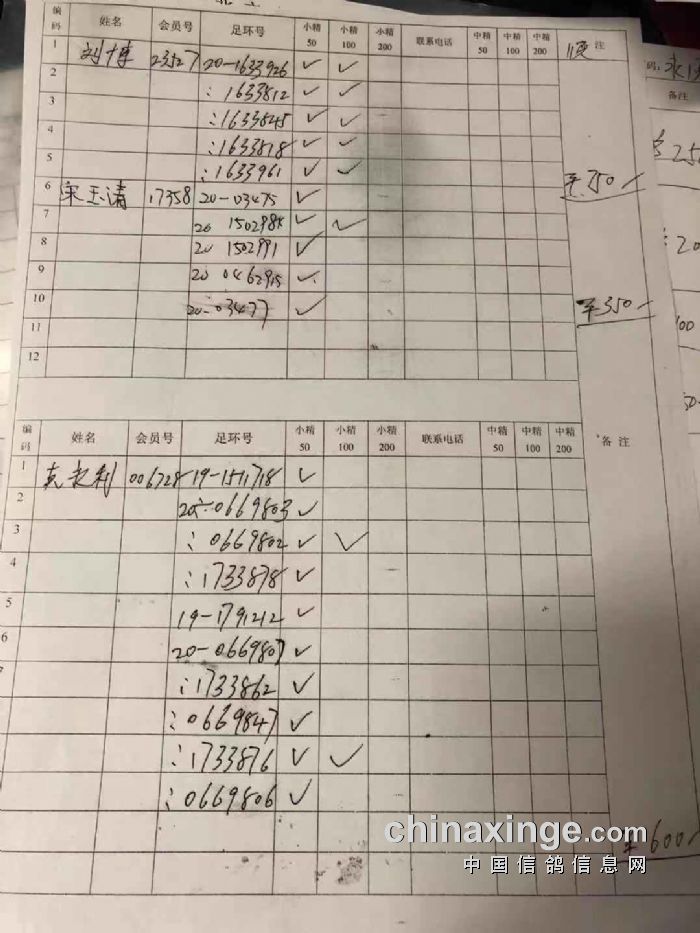 编码 姓名 会员号 足环号 小精50 小精100 小精200 联系电话 中精50 中精100 中精200 注
1 刘博 23527 20-1633926 ✓ ✓
2 : 1633812 ✓ ✓
3 : 1633845 ✓ ✓
4 : 1633818 ✓ ✓
5 : 1633961 ✓ ✓ ¥750
6 宋玉清 17358 20-03475 ✓
7 20 1502985 ✓ ✓
8 20 1502991 ✓
9 20 0462915 ✓
10 20-03477 ✓ ¥350
11
12
编码 姓名 会员号 足环号 小精50 小精100 小精200 联系电话 中精50 中精100 中精200 备注
1 利 006728 19-1511718 ✓
2 20-0669803 ✓
3 : 0669802 ✓ ✓
4 : 1733878 ✓
5 19-1791212 ✓
6 20-0669807 ✓
: 1733862 ✓
: 0669847 ✓
: 1733876 ✓ ✓
: 0669806 ✓
¥600
备注
chinaxinge.com
中国信鸽信息网